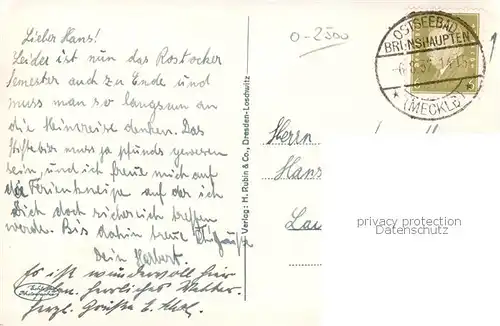 Lieber Hans!
Leider ist nun das Rostocker
Semester auch zu Ende und
muss man so langsam an
die Heimreise denken. Das
muss ja pfunds gewesen
sein, und ich freue mich auf
die Ferienkneipe auf der ich
Dich doch sicherlich treffen
werde. Bis dahin
Dein Herbert.
Es ist wundervoll hier
herrliches Wetter.
Herzl. Grüße
0-2500
OSTSEEBAD
BRUNSHAUPTEN
(MECKLB)
Verlag: H. Rubin & Co., Dresden-Loschwitz
Herrn
Hans
privacy protection
Datenschutz